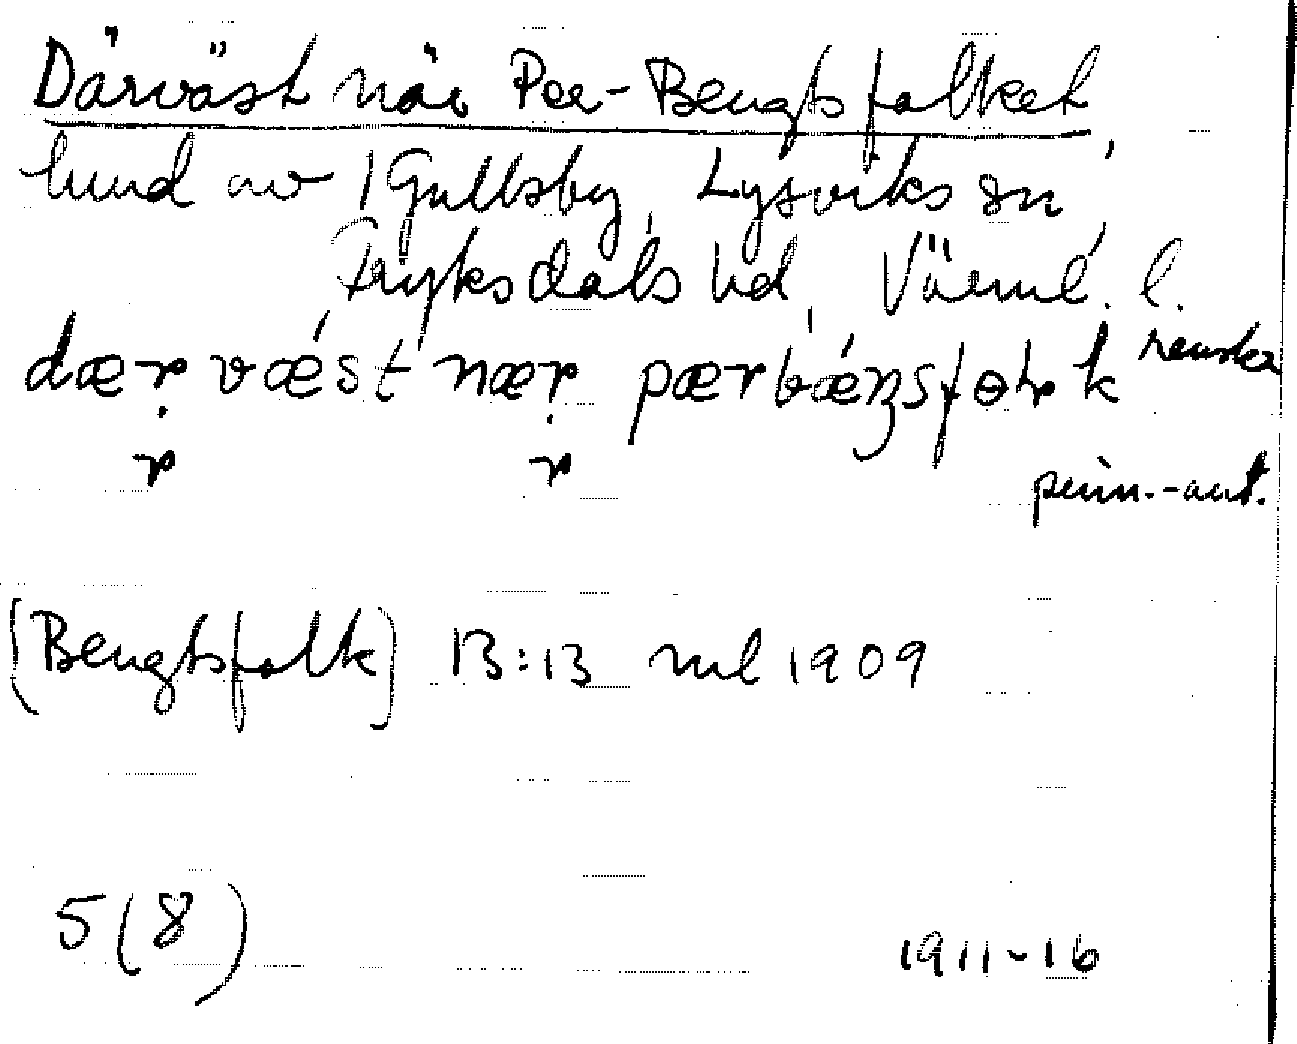 Därväst när Per-Bengtsfolket,
hmd av 1 Gullsby, Lysviks sn,
Fryksdals hd, Värml. l.
dær vǽst nær pærbǽŋsfɵɽk
r r
[Bengtsfolk] 13:13 ml 1909
5(8)
1911-16